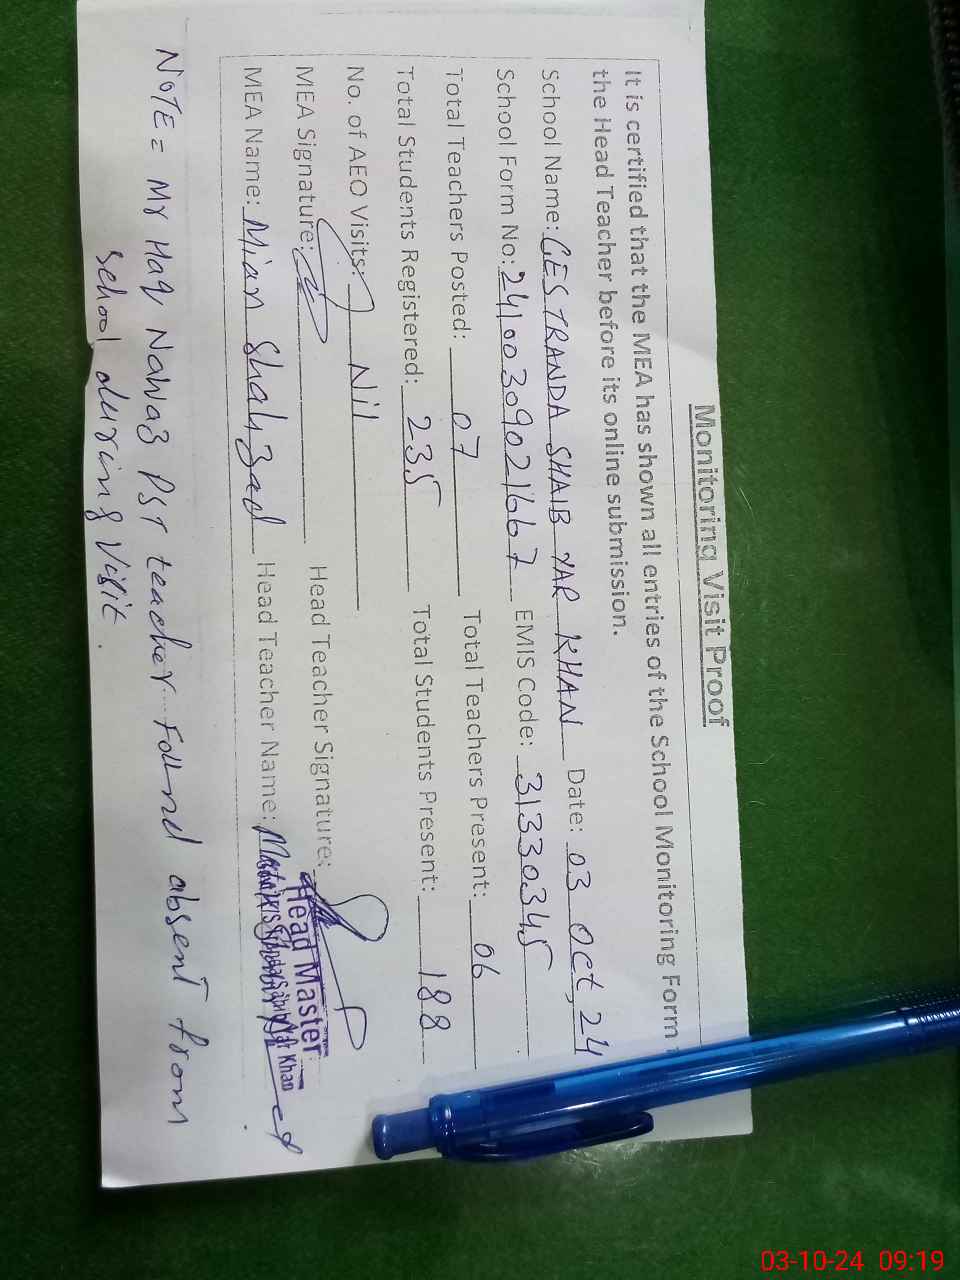 Monitoring Visit Proof
It is certified that the MEA has shown all entries of the School Monitoring Form
the Head Teacher before its online submission.
School Name: GES TRANDA SHAIB YAR KHAN Date: 03 Oct, 24
School Form No: 24100309021667 EMIS Code: 31330345
Total Teachers Posted: 07 Total Teachers Present: 06
Total Students Registered: 235 Total Students Present: 188
No. of AEO Visits: Nil
MEA Signature: Head Teacher Signature:
Head Master
MEA Name: Mian Shahzad Head Teacher Name:
Khan
NOTE = Mr Haq Nawaz PST teacher Found absent from
School during Visit.
03-10-24 09:19